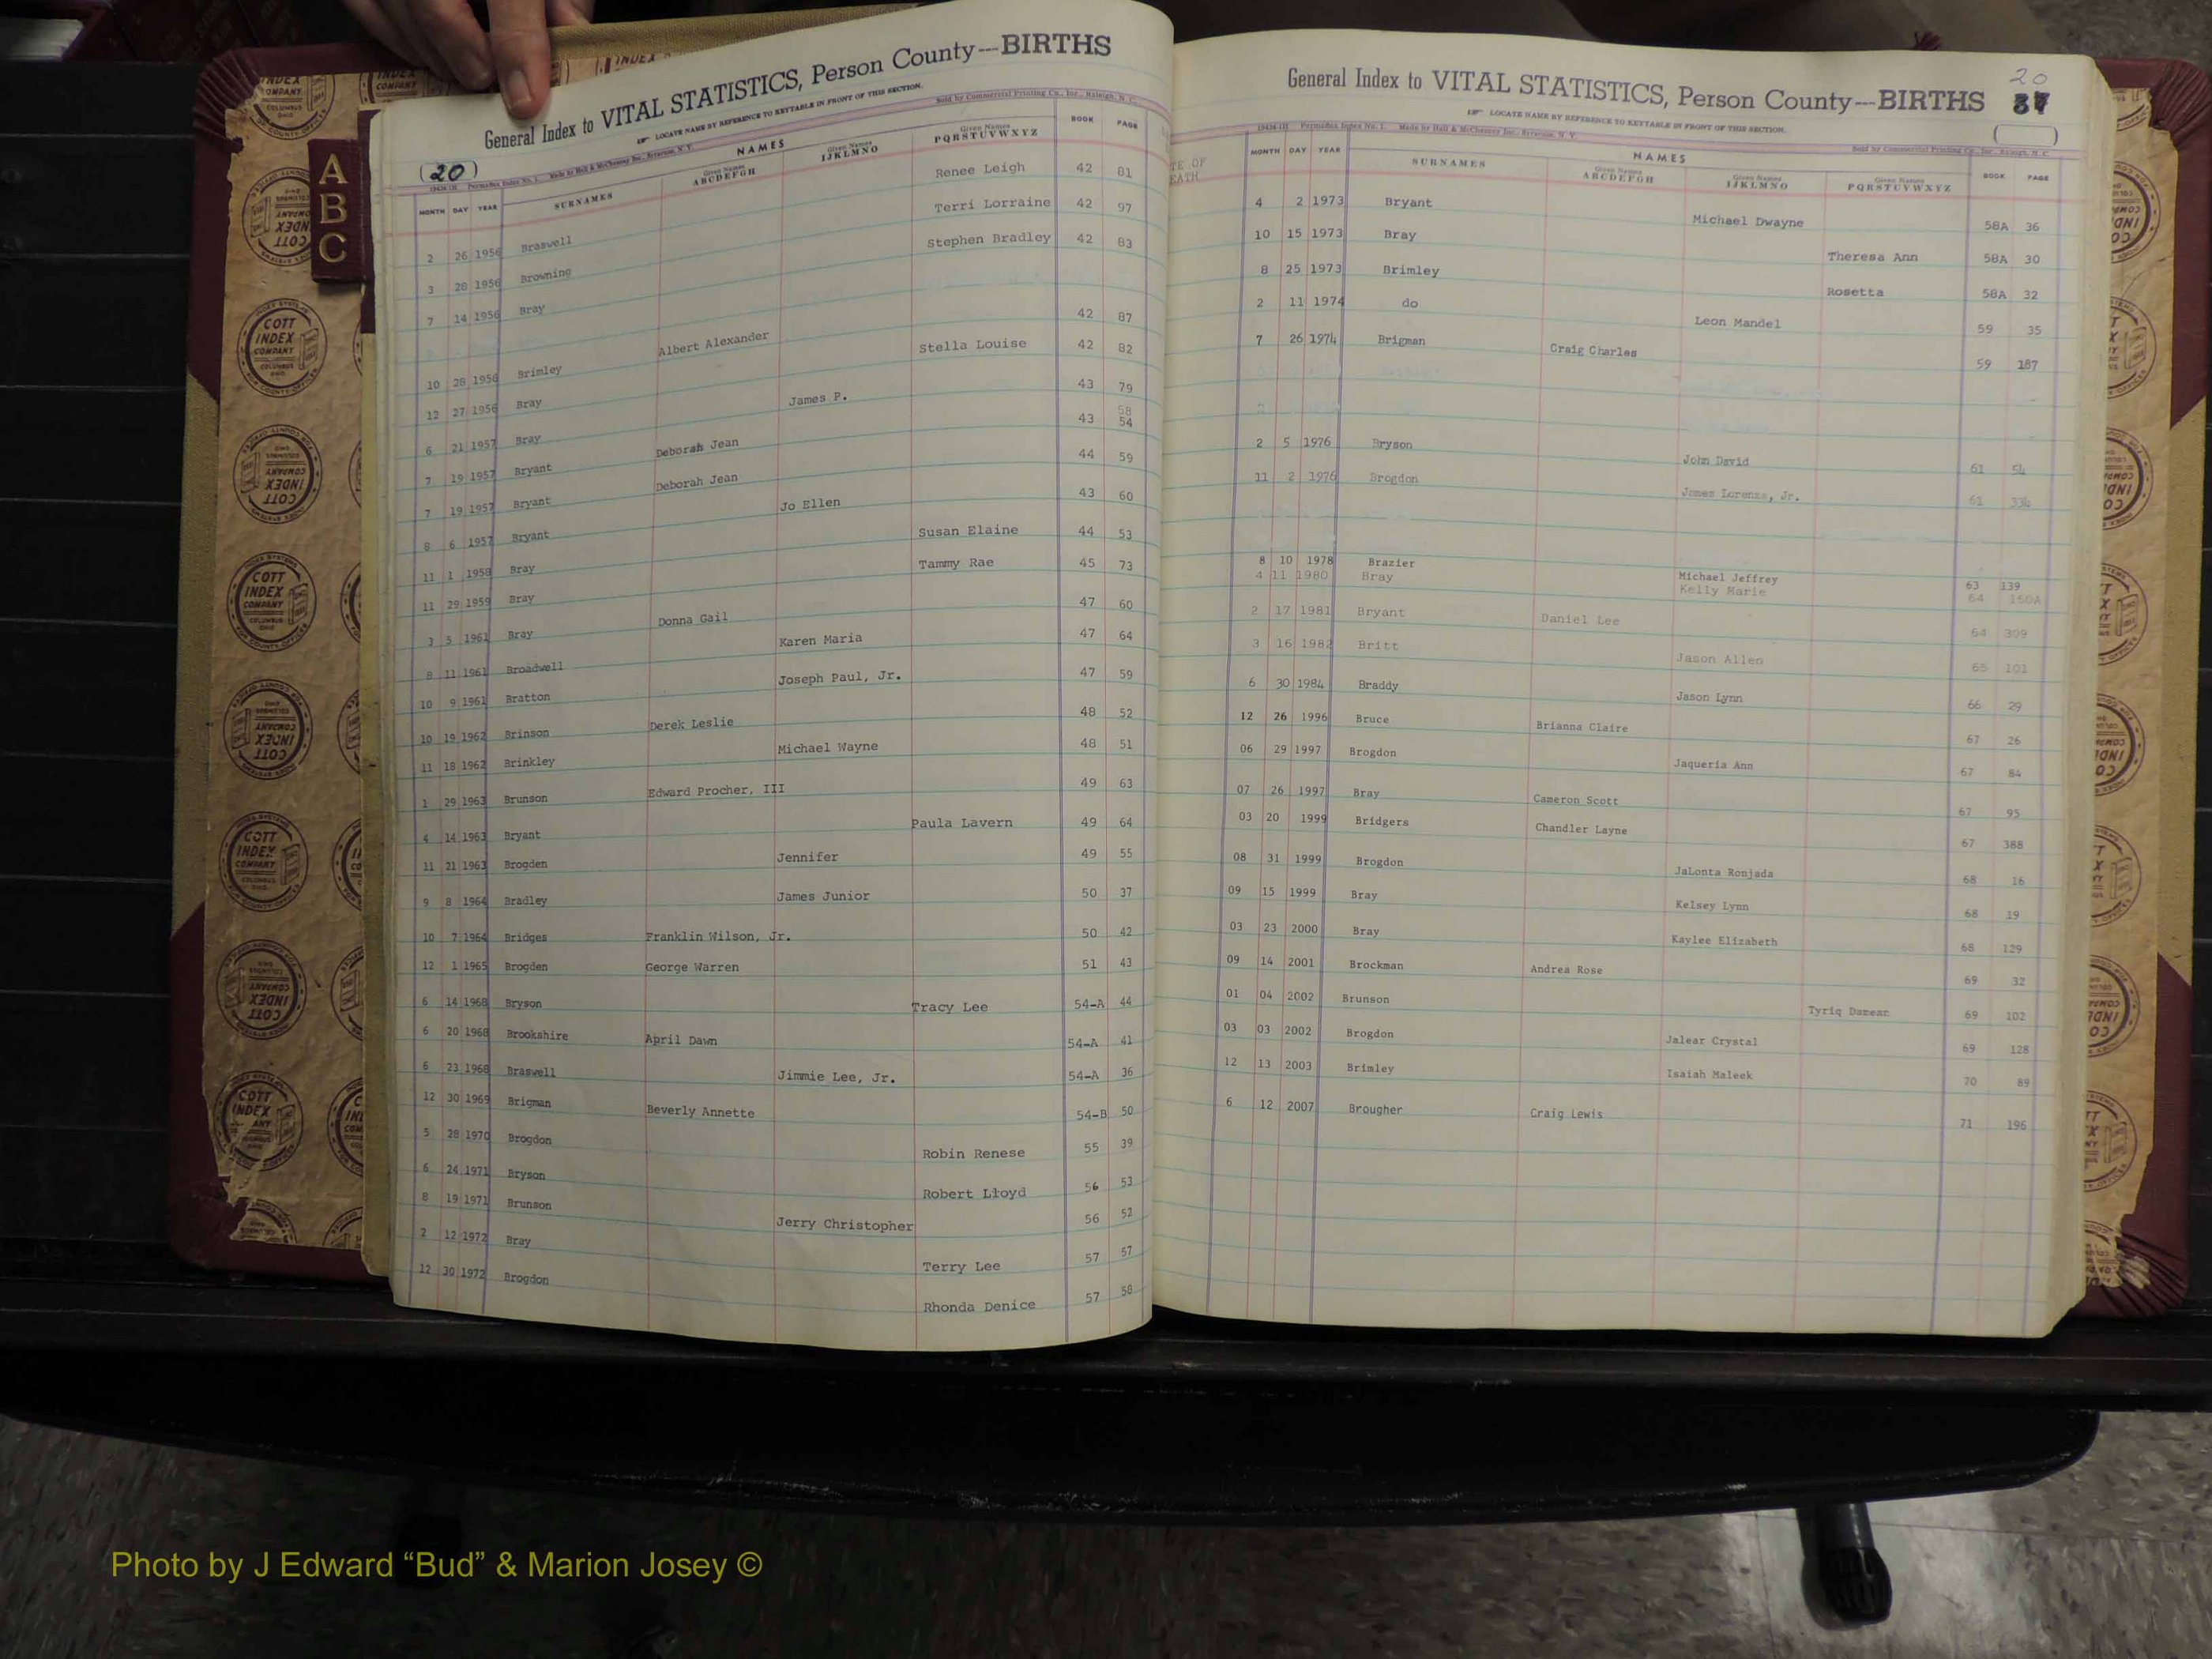 General Index to VITAL STATISTICS, Person County---BIRTHS
LOCATE NAME BY REFERENCE TO KEYTABLE IN FRONT OF THIS SECTION.
Sold by Commercial Printing Co., Inc., Raleigh, N. C.
(20)
Made by Hall & McChesney Inc., Syracuse, N. Y.
NAMES
MONTH DAY YEAR SURNAMES Given Names ABCDEFGH Given Names IJKLMNO Given Names PQRSTUVWXYZ BOOK PAGE
2 26 1956 Braswell Renee Leigh 42 81
3 28 1956 Browning Terri Lorraine 42 97
7 14 1956 Bray Stephen Bradley 42 83
10 28 1956 Brimley Albert Alexander 42 87
12 27 1956 Bray Stella Louise 42 82
6 21 1957 Bray James P. 43 79
7 19 1957 Bryant Deborah Jean 43 58 54
7 19 1957 Bryant Deborah Jean 44 59
8 6 1957 Bryant Jo Ellen 43 60
11 1 1958 Bray Susan Elaine 44 53
11 29 1959 Bray Tammy Rae 45 73
3 5 1961 Bray Donna Gail 47 60
8 11 1961 Broadwell Karen Maria 47 64
10 9 1961 Bratton Joseph Paul, Jr. 47 59
10 19 1962 Brinson Derek Leslie 48 52
11 18 1962 Brinkley Michael Wayne 48 51
1 29 1963 Brunson Edward Procher, III 49 63
4 14 1963 Bryant Paula Lavern 49 64
11 21 1963 Brogden Jennifer 49 55
9 8 1964 Bradley James Junior 50 37
10 7 1964 Bridges Franklin Wilson, Jr. 50 42
12 1 1965 Brogden George Warren 51 43
6 14 1968 Bryson Tracy Lee 54-A 44
6 20 1968 Brookshire April Dawn 54-A 41
6 23 1968 Braswell Jimmie Lee, Jr. 54-A 36
12 30 1969 Brigman Beverly Annette 54-B 50
5 28 1970 Brogdon Robin Renese 55 39
6 24 1971 Bryson Robert Lloyd 56 53
8 19 1971 Brunson Jerry Christopher 56 52
2 12 1972 Bray Terry Lee 57 57
12 30 1972 Brogdon Rhonda Denice 57 58
General Index to VITAL STATISTICS, Person County---BIRTHS
20
37
LOCATE NAME BY REFERENCE TO KEYTABLE IN FRONT OF THIS SECTION.
Made by Hall & McChesney Inc., Syracuse, N. Y.
Sold by Commercial Printing Co., Inc., Raleigh, N. C.
NAMES
MONTH DAY YEAR SURNAMES Given Names ABCDEFGH Given Names IJKLMNO Given Names PQRSTUVWXYZ BOOK PAGE
4 2 1973 Bryant Michael Dwayne 58A 36
10 15 1973 Bray Theresa Ann 58A 30
8 25 1973 Brimley Rosetta 58A 32
2 11 1974 do Leon Mandel 59 35
7 26 1974 Brigman Craig Charles 59 187
2 5 1976 Bryson John David 61 54
11 2 1976 Brogdon James Lorenza, Jr. 61 334
8 10 1978 Brazier Michael Jeffrey 63 139
4 11 1980 Bray Kelly Marie 64 150A
2 17 1981 Bryant Daniel Lee 64 309
3 16 1982 Britt Jason Allen 65 101
6 30 1984 Braddy Jason Lynn 66 29
12 26 1996 Bruce Brianna Claire 67 26
06 29 1997 Brogdon Jaqueria Ann 67 84
07 26 1997 Bray Cameron Scott 67 95
03 20 1999 Bridgers Chandler Layne 67 388
08 31 1999 Brogdon JaLonta Ronjada 68 16
09 15 1999 Bray Kelsey Lynn 68 19
03 23 2000 Bray Kaylee Elizabeth 68 129
09 14 2001 Brockman Andrea Rose 69 32
01 04 2002 Brunson Tyriq Damear 69 102
03 03 2002 Brogdon Jalear Crystal 69 128
12 13 2003 Brimley Isaiah Maleek 70 89
6 12 2007 Brougher Craig Lewis 71 196
A
B
C
COTT
INDEX
COMPANY
COLUMBUS
OHIO
Photo by J Edward “Bud” & Marion Josey ©